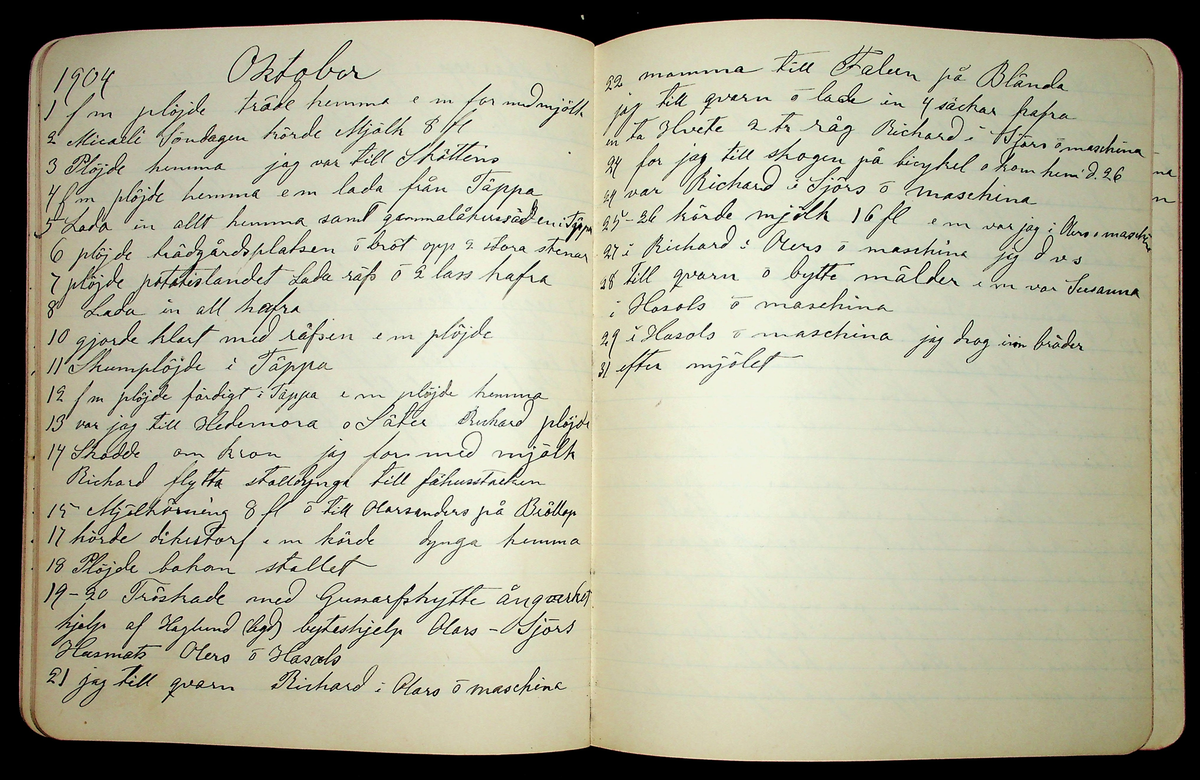 1904 Oktober
1 f m plöjde träde hemma e m for med mjölk
2 Micaeli Söndagen körde Mjölk 8 fl
3 Plöjde hemma jag var till Sköttins
4 f m plöjde hemma e m lada från Täppa
5 Lada in allt hemma samt gammalåkerssäden i Täppa
6 plöjde trädgårdsplatsen ō bröt opp 2 stora stenar
7 plöjde potatislandet Lada räfs ō 2 lass hafra
8 Lada in all hafra
10 gjorde klart med räfsen e m plöjde
11 Skumplöjde i Täppa
12 f m plöjde färdigt i Täppa e m plöjde hemma
13 var jag till Hedemora o Säter Richard plöjde
14 Skodde om kron jag for med mjölk
Richard flytta stalldynga till fähusstacken
15 Mjölkörning 8 fl ō till Olarsanders på Bröllop
17 körde dikestorf e m körde dynga hemma
18 Plöjde bakom stallet
19-20 Tröskade med Gussarfshytte ångverket
hjelp af Haglund (legd) byteshjelp Olars - Sjörs
Hasmats Olers ō Hasols
21 jag till qvarn Richard i Olars ō maschina
22 mamma till Falun på Blända
jag till qvarn ō lade in 4 säckar hafra
en ta Hvete 2 tr råg Richard i Sjörs ō maschina
24 for jag till skogen på bicykel o kom hem d. 26
24 var Richard i Sjörs ō maschina
25-26 körde mjölk 16 fl e m var jag i Olers o maschina
27 i Richard i Olers ō maschina jag d v s
28 till qvarn ō bytte mälder e m var Susanna
i Hasols ō maschina
29 i Hasols ō maschina jag drog in bräder
31 efter mjölet